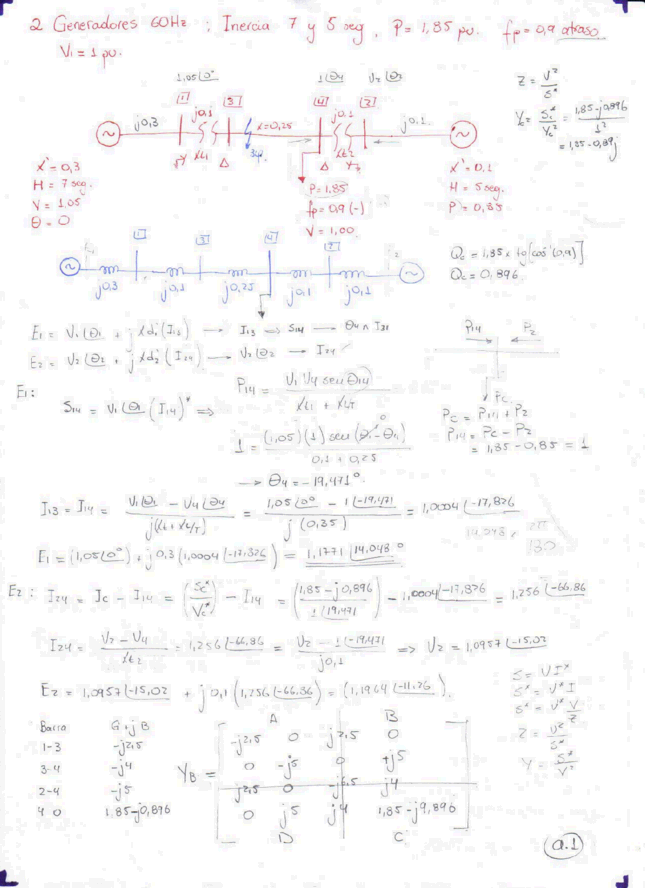 2 Generadores 60Hz ; Inercia 7 y 5 seg , P = 1,85 pu. fp = 0,9 atraso
V1 = 1 pu.
1,05∠0° 1∠θ4 V2∠θ2
Z = V²/S*
1 3 4 2
j0,3 j0,1 x=0,25 j0,1 j0,1
Yc = Sc*/Vc² = (1,85-j0,896)/1² = 1,85-0,89j
Xt1 Δ 3φ Δ Xt2
x' = 0,3
H = 7 seg.
V = 1,05
θ = 0
P = 1,85
fp = 0,9 (-)
V = 1,00
x' = 0,1
H = 5 seg.
P = 0,85
1 3 4 2
j0,3 j0,1 j0,25 j0,1 j0,1
Qc = 1,85 x tg[cos⁻¹(0,9)]
Qc = 0,896
E1 = V1∠θ1 + jXd1'(I13) → I13 ⇒ S14 → θ4 ∧ I31
E2 = V2∠θ2 + jXd2'(I24) → V2∠θ2 → I24
P14 P2
E1:
S14 = V1∠θ1 (I14)* ⇒ P14 = V1 V4 sen θ14 / (Xt1 + XLT)
Pc
Pc = P14 + P2
P14 = Pc - P2
= 1,85 - 0,85 = 1
1 = (1,05)(1) sen(θ1 - θ4) / (0,1 + 0,25)
→ θ4 = -19,471°
I13 = I14 = (V1∠θ1 - V4∠θ4) / j(Xt1+XLT) = (1,05∠0° - 1∠-19,471) / j(0,35) = 1,0004∠-17,826
E1 = (1,05∠0°) + j0,3(1,0004∠-17,826) = 1,1771∠14,048°
14,048 x 2π/180
E2: I24 = Ic - I14 = (Sc*/Vc*) - I14 = (1,85-j0,896 / 1∠19,471) - 1,0004∠-17,826 = 1,256∠-66,86
I24 = (V2 - V4)/Xt2 = 1,256∠-66,86 = (V2 - 1∠-19,471)/j0,1 ⇒ V2 = 1,0957∠-15,02
E2 = 1,0957∠-15,02 + j0,1(1,256∠-66,86) = (1,1964∠-11,26).
S = VI*
S* = V*I
S* = V* V/Z
Z = V²/S*
Y = S*/V²
Barra G+jB
1-3 -j2,5
3-4 -j4
2-4 -j5
4 0 1.85-j0,896
A B
YB =
-j2,5 0 j2,5 0
0 -j5 0 +j5
j2,5 0 -j6,5 j4
0 j5 j4 1,85-j9,896
D C
a.1